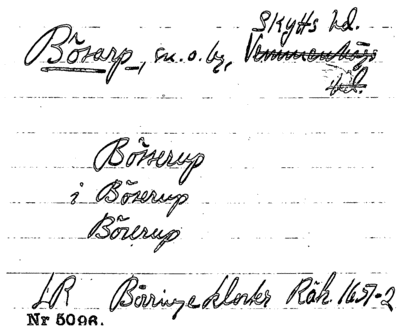 Skytts hd.
Bösarp, sn. o. by, Vemmenhögs
hd.
Bösserup
i Böserup
Böserup
LR Börringe kloster Räk. 1651-2
Nr 5096.